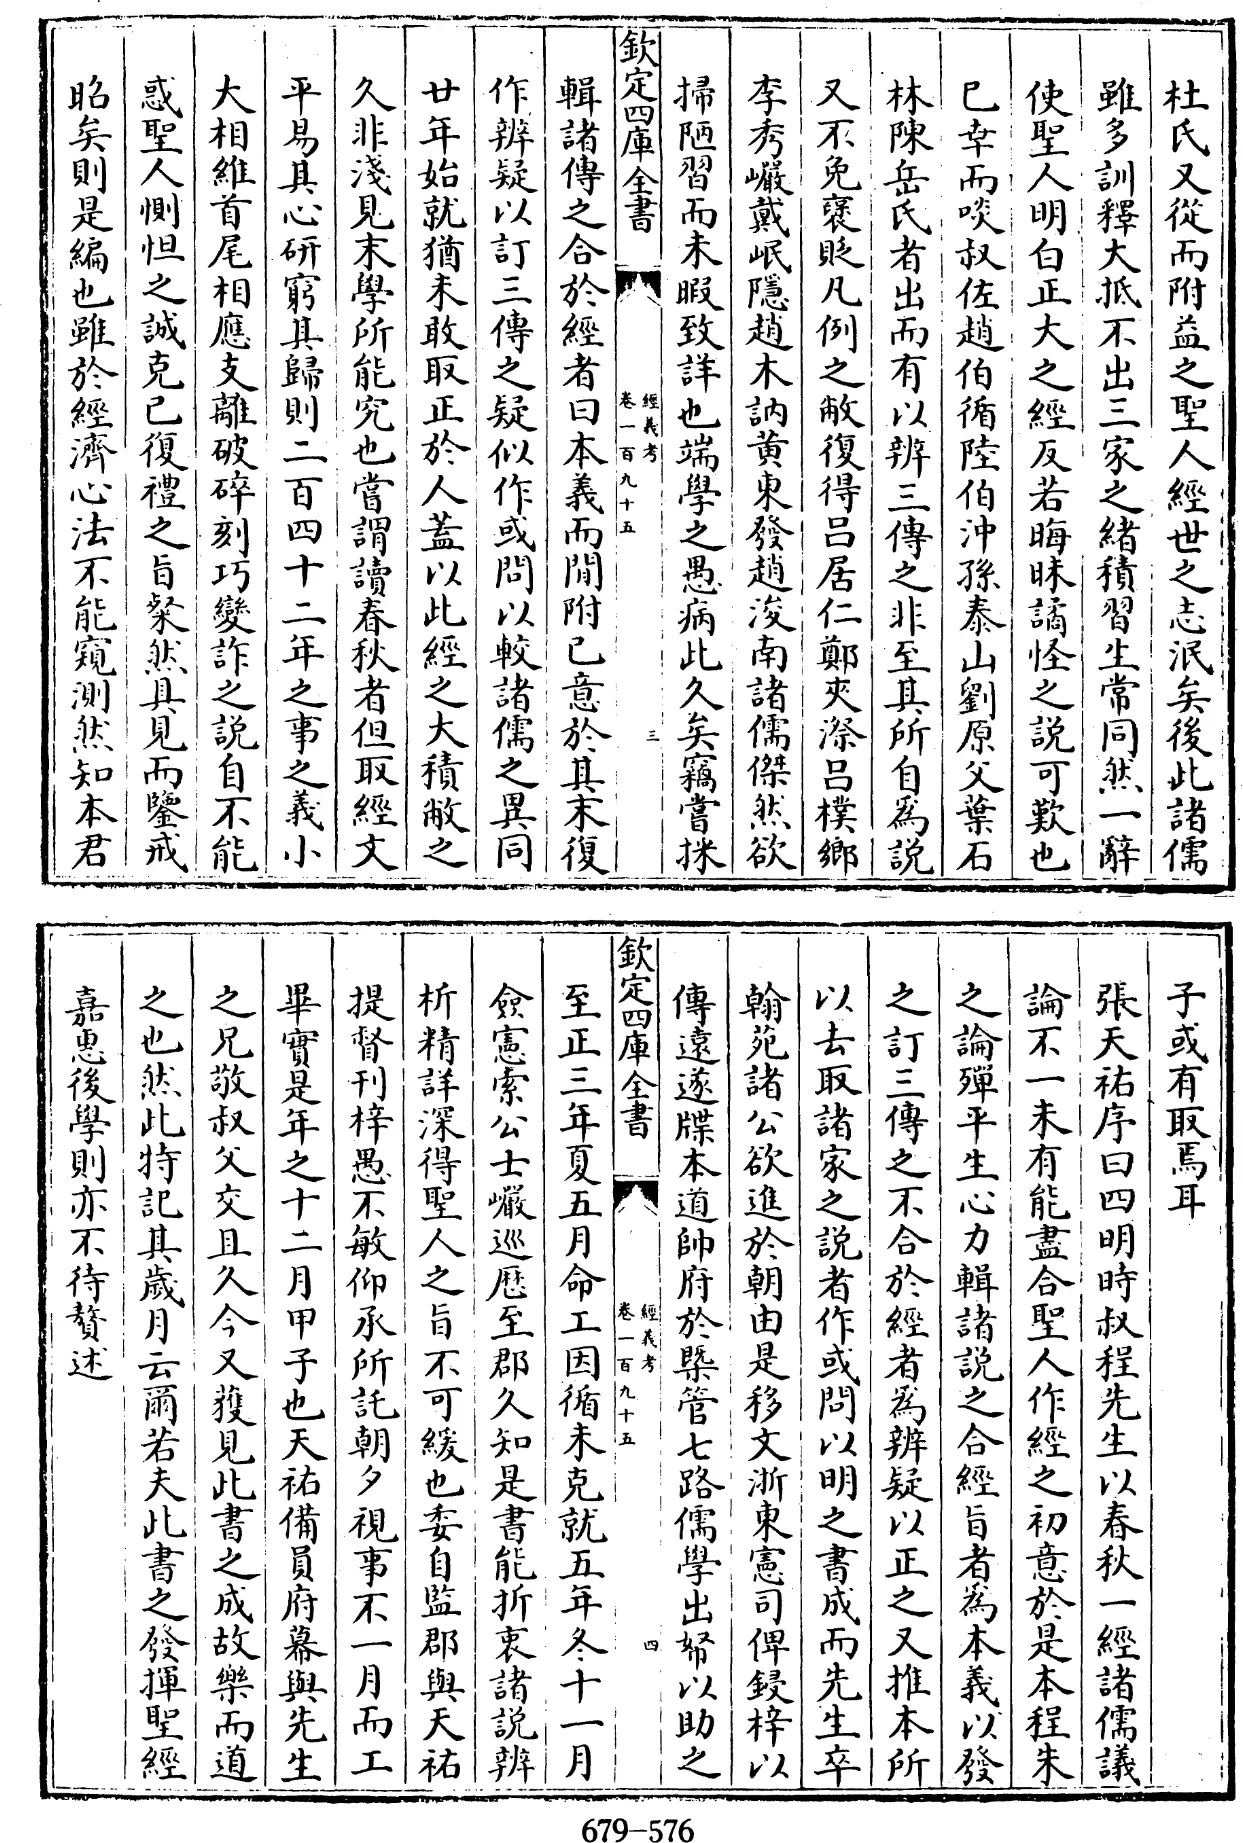 杜氏又從而附益之聖人經世之志泯矣後此諸儒
雖多訓釋大抵不出三家之緒積習生常同然一辭
使聖人明白正大之經反若晦昧譎怪之説可歎也
已幸而啖叔佐趙伯循陸伯沖孫泰山劉原父葉石
林陳岳氏者出而有以辨三傳之非至其所自爲説
又不免褒貶凡例之敝復得吕居仁鄭夾漈吕樸鄉
李秀巖戴岷隱趙木訥黄東發趙浚南諸儒傑然欲
掃陋習而未暇致詳也端學之愚病此久矣竊嘗採
欽定四庫全書
經義考
卷一百九十五
三
輯諸傳之合於經者曰本義而間附己意於其末復
作辨疑以訂三傳之疑似作或問以較諸儒之異同
廿年始就猶未敢取正於人蓋以此經之大積敝之
久非淺見末學所能究也嘗謂讀春秋者但取經文
平易其心研窮其歸則二百四十二年之事之義小
大相維首尾相應支離破碎刻巧變詐之説自不能
惑聖人惻怛之誠克己復禮之旨粲然具見而鑒戒
昭矣則是編也雖於經濟心法不能窺測然知本君
子或有取焉耳
張天祐序曰四明時叔程先生以春秋一經諸儒議
論不一未有能盡合聖人作經之初意於是本程朱
之論殫平生心力輯諸説之合經旨者爲本義以發
之訂三傳之不合於經者爲辨疑以正之又推本所
以去取諸家之説者作或問以明之書成而先生卒
翰苑諸公欲進於朝由是移文浙東憲司俾鋟梓以
傳遠遂牒本道帥府於槩管七路儒學出帑以助之
欽定四庫全書
經義考
卷一百九十五
四
至正三年夏五月命工因循未克就五年冬十一月
僉憲索公士巖巡歷至郡久知是書能折衷諸説辨
析精詳深得聖人之旨不可緩也委自監郡與天祐
提督刊梓愚不敏仰承所託朝夕視事不一月而工
畢實是年之十二月甲子也天祐備員府幕與先生
之兄敬叔父交且久今又獲見此書之成故樂而道
之也然此特記其歲月云爾若夫此書之發揮聖經
嘉惠後學則亦不待贅述
679-576